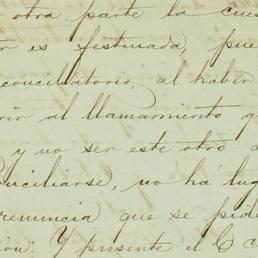 otra parte la cues
es festinada, pue
conciliatorio, al haber
rir al llamamiento q
y no ser este otro
nciliarse, no ha lug
renuncia que se pide
ion. Y presente el C